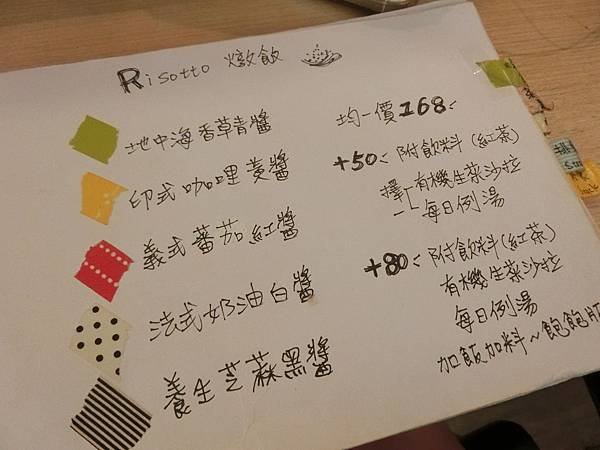 Risotto 燉飯
地中海香草青醬
印式咖哩黃醬
義式蕃茄紅醬
法式奶油白醬
養生芝蔴黑醬
均一價168
+50 附飲料(紅茶)
擇一 有機生菜沙拉
每日例湯
+80 附飲料(紅茶)
有機生菜沙拉
每日例湯
加飯加料~飽飽